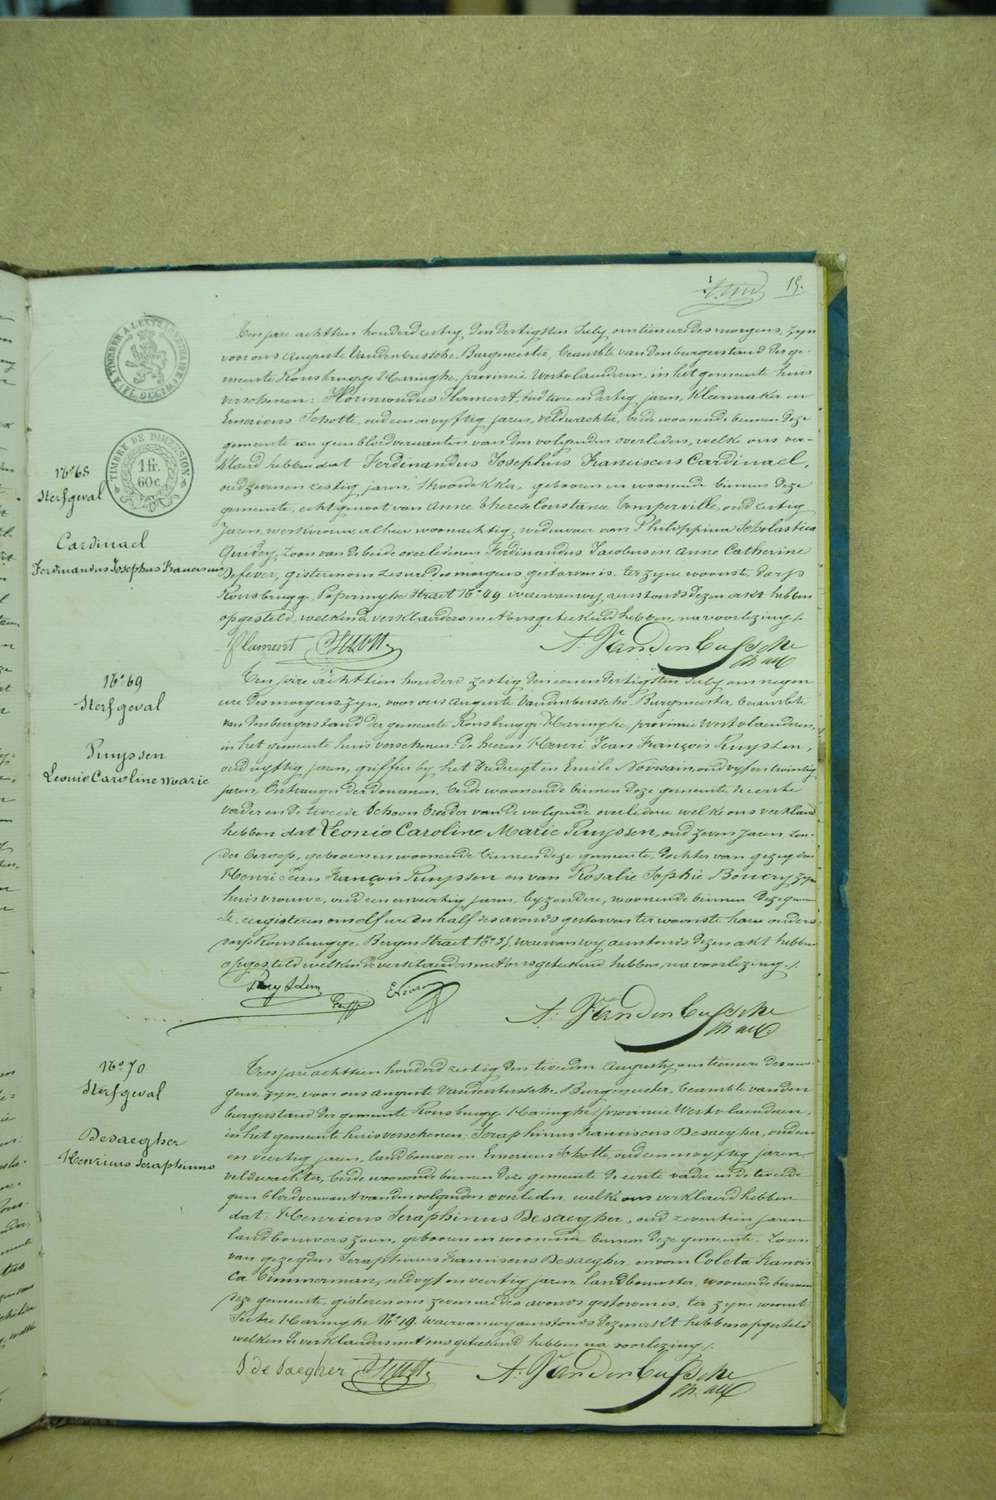 15.
TIMBRE DE DIMENSION
1 fr.
60 c.
N° 68
Sterfgeval
Cardinael
Ferdinandus Josephus Franciscus
Ten jare achttien honderd zestig, den dertigsten July, om tien ure des morgens, zyn
voor ons Auguste Vandenbussche, Burgmeester, beambte van den burgerstand der ge-
meente Rousbrugge Haringhe, provincie Westvlaenderen, in het gemeente huis
verschenen: Flament, oud twee en dertig jaren, Kleermaker en
Emerions Schotte, oud een en vyftig jaren, veldwachter, beide woonende binnen deze
gemeente en geen bloedverwanten van den volgenden overleden, welke ons ver-
klaerd hebben dat Ferdinandus Josephus Franciscus Cardinael,
oud zeven en zestig jaren, geboren en woonende binnen deze
gemeente, echtgenoot van Anne Therese Constance Temperville, oud zestig
jaren, werkvrouw, alhier woonachtig, weduwaer van Philippina Scholastica
zoon van de beide overledenen Ferdinandus Jacobus en Anne Catherine
Defever, gisteren om zes ure des morgens gestorven is, ter zyne woonst, dorp
Rousbrugge Poperinghe Straet N° 49. waervan wy aenstonds dezen akt hebben
opgesteld, welken de verklaerders met ons geteekend hebben, na voorlezing./.
Flament Schotte A. Vandenbussche
N° 69
Sterfgeval
Ruyssen
Leonie Caroline Marie
Ten jare achttien honderd zestig den eenen dertigsten July, om negen
ure des morgens zyn, voor ons Auguste Vandenbussche Burgmeester, beambte
van den burgerstand der gemeente Rousbrugge Haringhe, provincie Westvlaenderen,
in het gemeente huis verschenen: De heeren Henri Jean François Ruyssen,
oud vyftig jaren, griffier by het Vredegerecht en Emile Noweain, oud vyf en twintig
jaren, Ontvanger der douanen, beide woonende binnen deze gemeente de eerste
vader en de tweede Schoon broeder van de volgende overledene welke ons verklaerd
hebben dat Leonie Caroline Marie Ruyssen, oud zeven jaren zon-
der beroep, geboren en woonende binnen deze gemeente, dochter van gezegden
Henri Jean François Ruyssen en van Rosalie Sophie Boucry zyne
huisvrouwe, oud een en veertig jaren, byzondere, woonende binnen deze gemeen-
te, eergisteren om elf ure en half des avonds gestorven is ter woonste harer ouders
dorp Rousbrugge, Bergen Straet waervan wy aenstonds dezen akt hebben
opgesteld welken de verklaerders met ons geteekend hebben, na voorlezing./.
Ruyssen A. Vandenbussche
N° 70
Sterfgeval
Desaegher
Henricus Seraphinus
Ten jare achttien honderd zestig den tweeden Augusty, om tien ure des mor-
gens, zyn, voor ons Auguste Vandenbussche Burgmeester, beambte van den
burgerstand der gemeente Rousbrugge Haringhe, provincie Westvlaenderen,
in het gemeente huis verschenen: Seraphinus Franciscus Desaegher, oud
en veertig jaren, landbouwer en Emerions Schotte, oud een en vyftig jaren,
veldwachter, beide woonende binnen deze gemeente de eerste vader en de tweede
geen bloedverwant van den volgenden overleden, welke ons verklaerd hebben
dat: Henricus Seraphinus Desaegher, oud zeventien jaren
landbouwers zoon, geboren en woonende binnen deze gemeente. Zoon
van gezegden Seraphinus Franciscus Desaegher, en van Coleta Francis-
ca Timmerman, oud vyf en veertig jaren, landbouwster, woonende binnen
deze gemeente, gisteren om zeven ure des avonds gestorven is, ter zyne woonst
Haringhe N° 19. waervan wy aenstonds dezen akt hebben opgesteld
welken de verklaerders met ons geteekend hebben na voorlezing./.
S de Saegher Schotte A. Vandenbussche